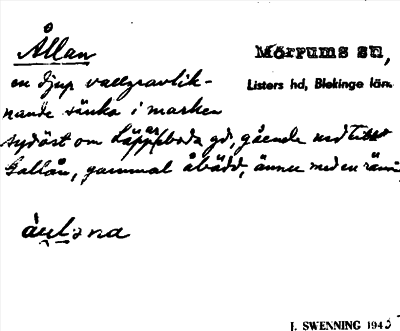 Ållan
Mörrums sn,
Listers hd, Blekinge län.
en djup vallgravlik-
nande sänka i marken
sydöst om gd, gående ned till
Gallån, gammal åbädd, ännu med en
J. SWENNING 1943